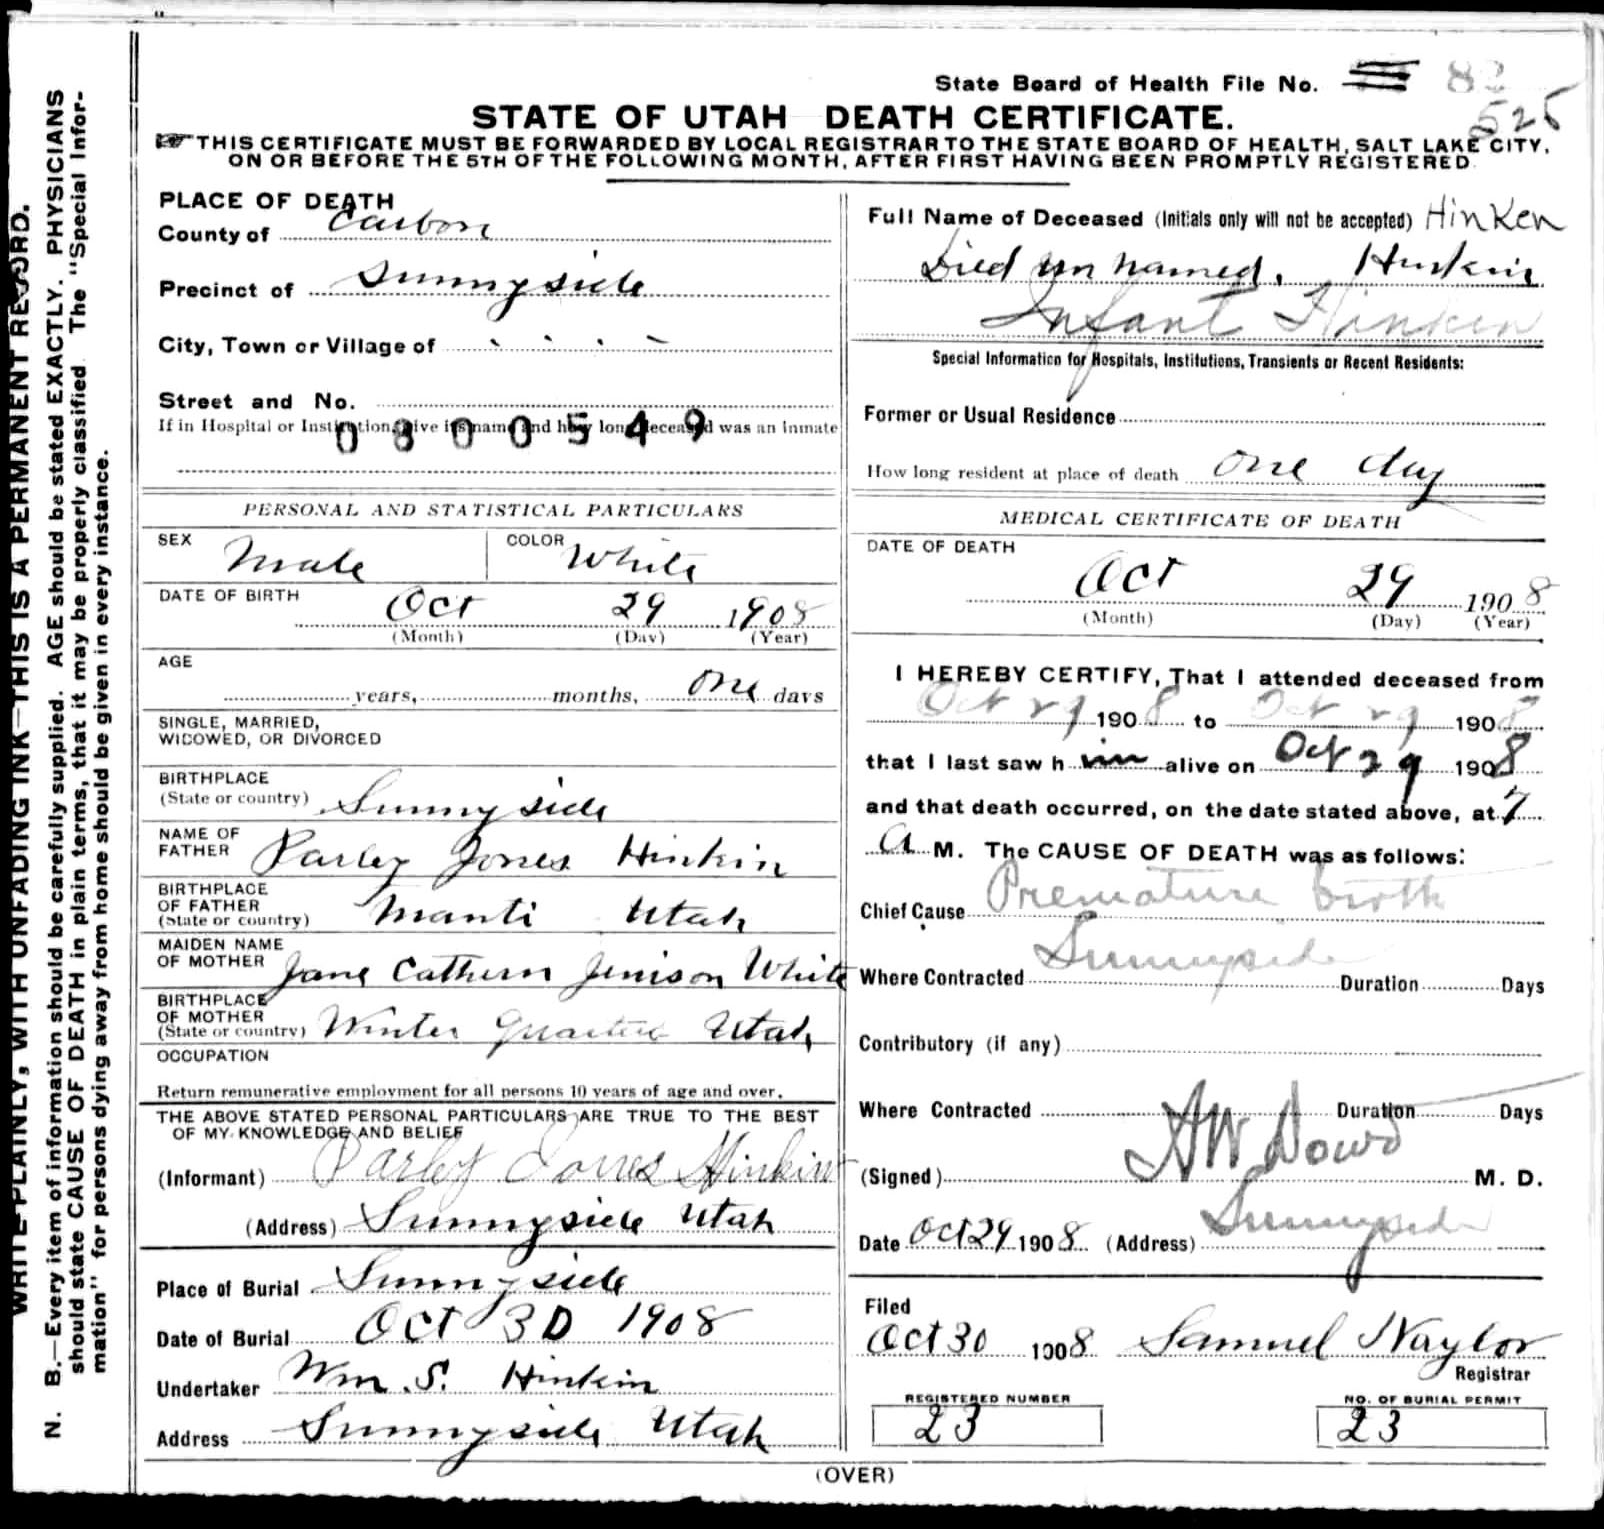 State Board of Health File No. 82
525
STATE OF UTAH DEATH CERTIFICATE.
THIS CERTIFICATE MUST BE FORWARDED BY LOCAL REGISTRAR TO THE STATE BOARD OF HEALTH, SALT LAKE CITY,
ON OR BEFORE THE 5TH OF THE FOLLOWING MONTH, AFTER FIRST HAVING BEEN PROMPTLY REGISTERED.
WRITE PLAINLY, WITH UNFADING INK—THIS IS A PERMANENT RECORD.
N. B.—Every item of information should be carefully supplied. AGE should be stated EXACTLY. PHYSICIANS
should state CAUSE OF DEATH in plain terms, that it may be properly classified. The "Special Infor-
mation" for persons dying away from home should be given in every instance.
PLACE OF DEATH
County of Carbon
Precinct of Sunnyside
City, Town or Village of
Street and No.
If in Hospital or Institution, give its name and how long deceased was an inmate
0800549
PERSONAL AND STATISTICAL PARTICULARS
SEX Male COLOR White
DATE OF BIRTH Oct 29 1908
(Month) (Day) (Year)
AGE
years, months, one days
SINGLE, MARRIED,
WIDOWED, OR DIVORCED
BIRTHPLACE
(State or country) Sunnyside
NAME OF
FATHER Parley Jones Hinkin
BIRTHPLACE
OF FATHER
(State or country) Manti Utah
MAIDEN NAME
OF MOTHER Jane Cathern Jenison White
BIRTHPLACE
OF MOTHER
(State or country) Winter Quarters Utah
OCCUPATION
Return remunerative employment for all persons 10 years of age and over.
THE ABOVE STATED PERSONAL PARTICULARS ARE TRUE TO THE BEST
OF MY KNOWLEDGE AND BELIEF
(Informant) Parley Jones Hinkin
(Address) Sunnyside Utah
Place of Burial Sunnyside
Date of Burial Oct 30 1908
Undertaker Wm. S. Hinkin
Address Sunnyside Utah
Full Name of Deceased (Initials only will not be accepted) Hinken
Died un named. Hinkin
Infant Hinkin
Special Information for Hospitals, Institutions, Transients or Recent Residents:
Former or Usual Residence
How long resident at place of death one day
MEDICAL CERTIFICATE OF DEATH
DATE OF DEATH
Oct 29 1908
(Month) (Day) (Year)
I HEREBY CERTIFY, That I attended deceased from
Oct 29 1908 to Oct 29 1908
that I last saw h im alive on Oct 29 1908
and that death occurred, on the date stated above, at 7
A M. The CAUSE OF DEATH was as follows:
Chief Cause Premature birth
Where Contracted Sunnyside Duration Days
Contributory (if any)
Where Contracted Duration Days
(Signed) AW Dowd M. D.
Date Oct 29 1908 (Address) Sunnyside
Filed
Oct 30 1908 Samuel Naylor
Registrar
REGISTERED NUMBER
23
NO. OF BURIAL PERMIT
23
(OVER)